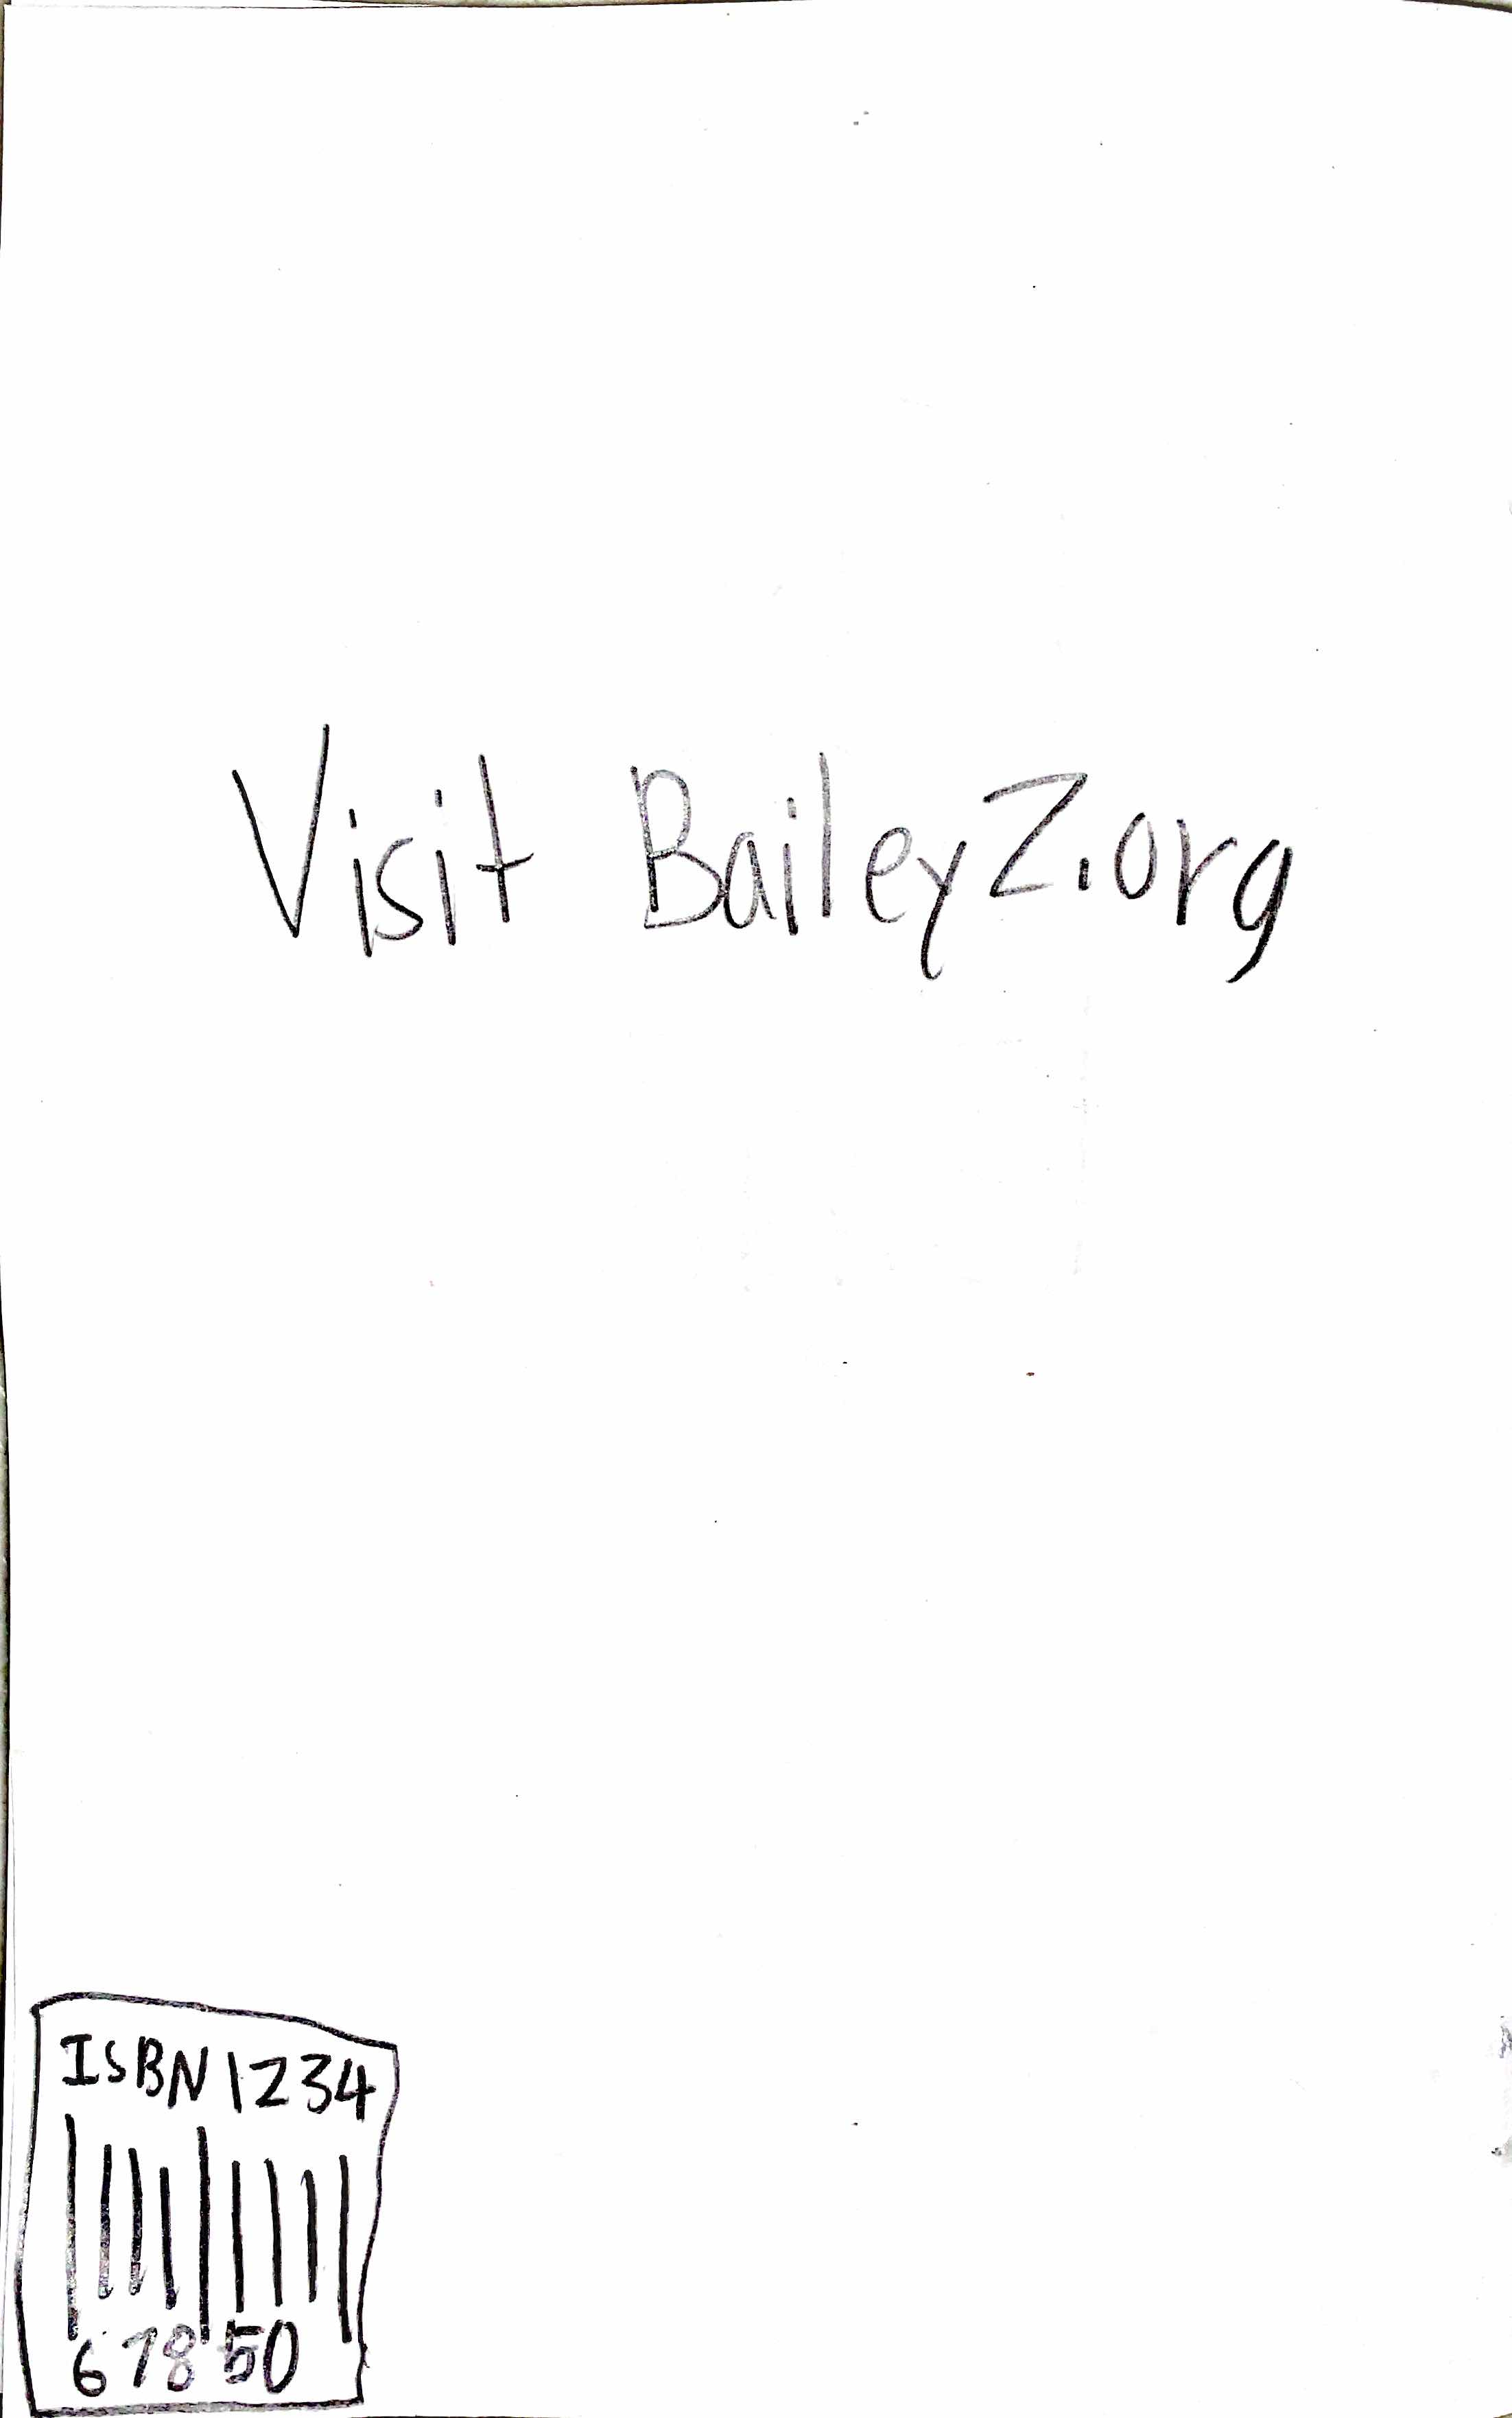 Visit BaileyZ.org
ISBN 1234
67850